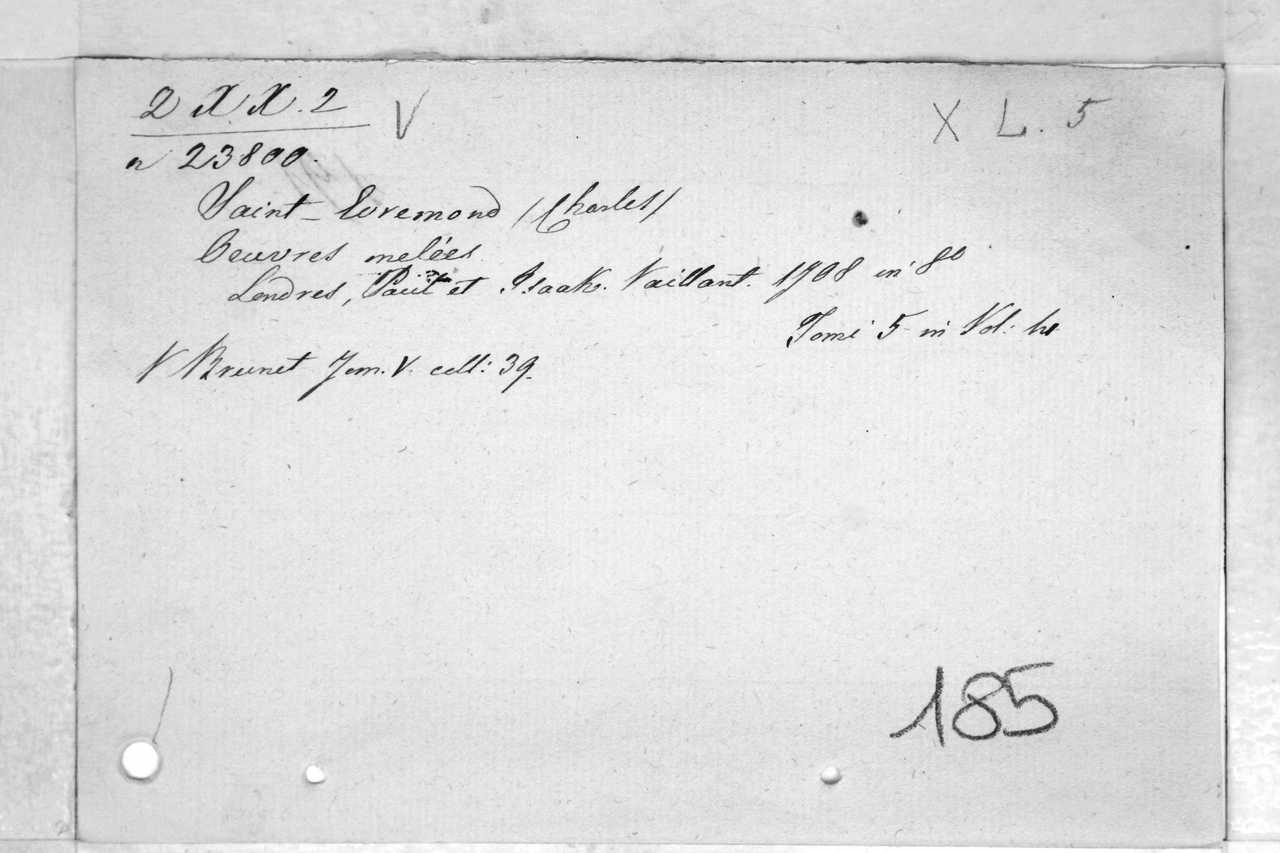 2 X X. 2 V X L. 5
n 23800.
Saint-Evremond /Charles/
Oeuvres melées
Londres, Paul et Isaak. Vaillant. 1708 in 8o
Tomi 5 in Vol:
V Brunet Tom. V. coll: 39.
185